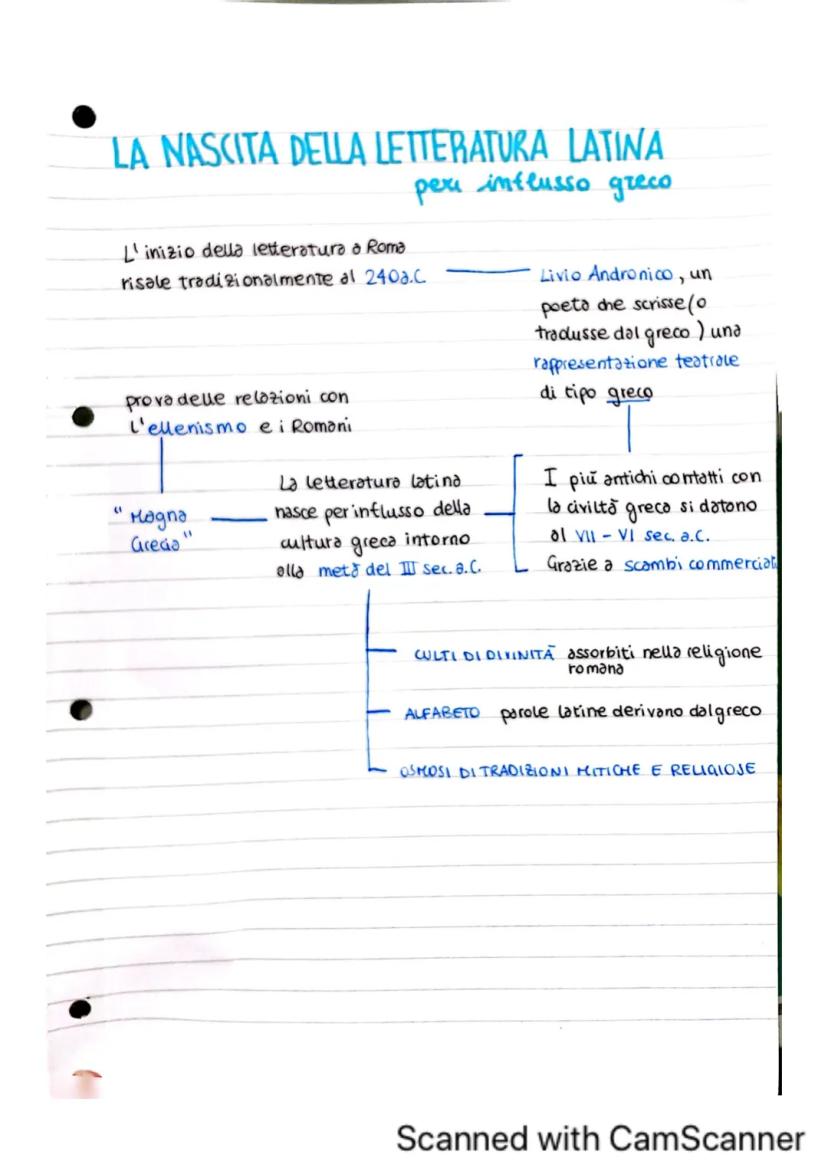 LA NASCITA DELLA LETTERATURA LATINA
per influsso greco
L'inizio della letteratura a Roma
risale tradizionalmente al 240a.C
Livio Andronico, un
poeta che scrisse (o
tradusse dal greco) una
rappresentazione teatrale
di tipo greco
prova delle relazioni con
l'ellenismo e i Romani
"Magna
Grecia"
La letteratura latina
nasce per influsso della
cultura greca intorno
alla metà del III sec. a.C.
I più antichi contatti con
la civiltà greca si datano
al VII - VI sec. a.C.
Grazie a scambi commerciali
CULTI DI DIVINITÀ assorbiti nella religione
romana
ALFABETO parole latine derivano dal greco
OSMOSI DI TRADIZIONI MITICHE E RELIGIOSE
Scanned with CamScanner